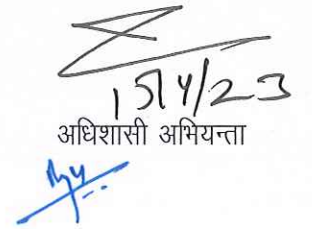 15/4/23
अधिशासी अभियन्ता